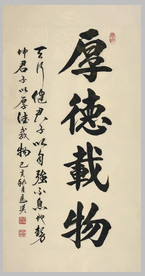 厚德載物
天行健君子以自強不息地勢
坤君子以厚德載物己亥秋月